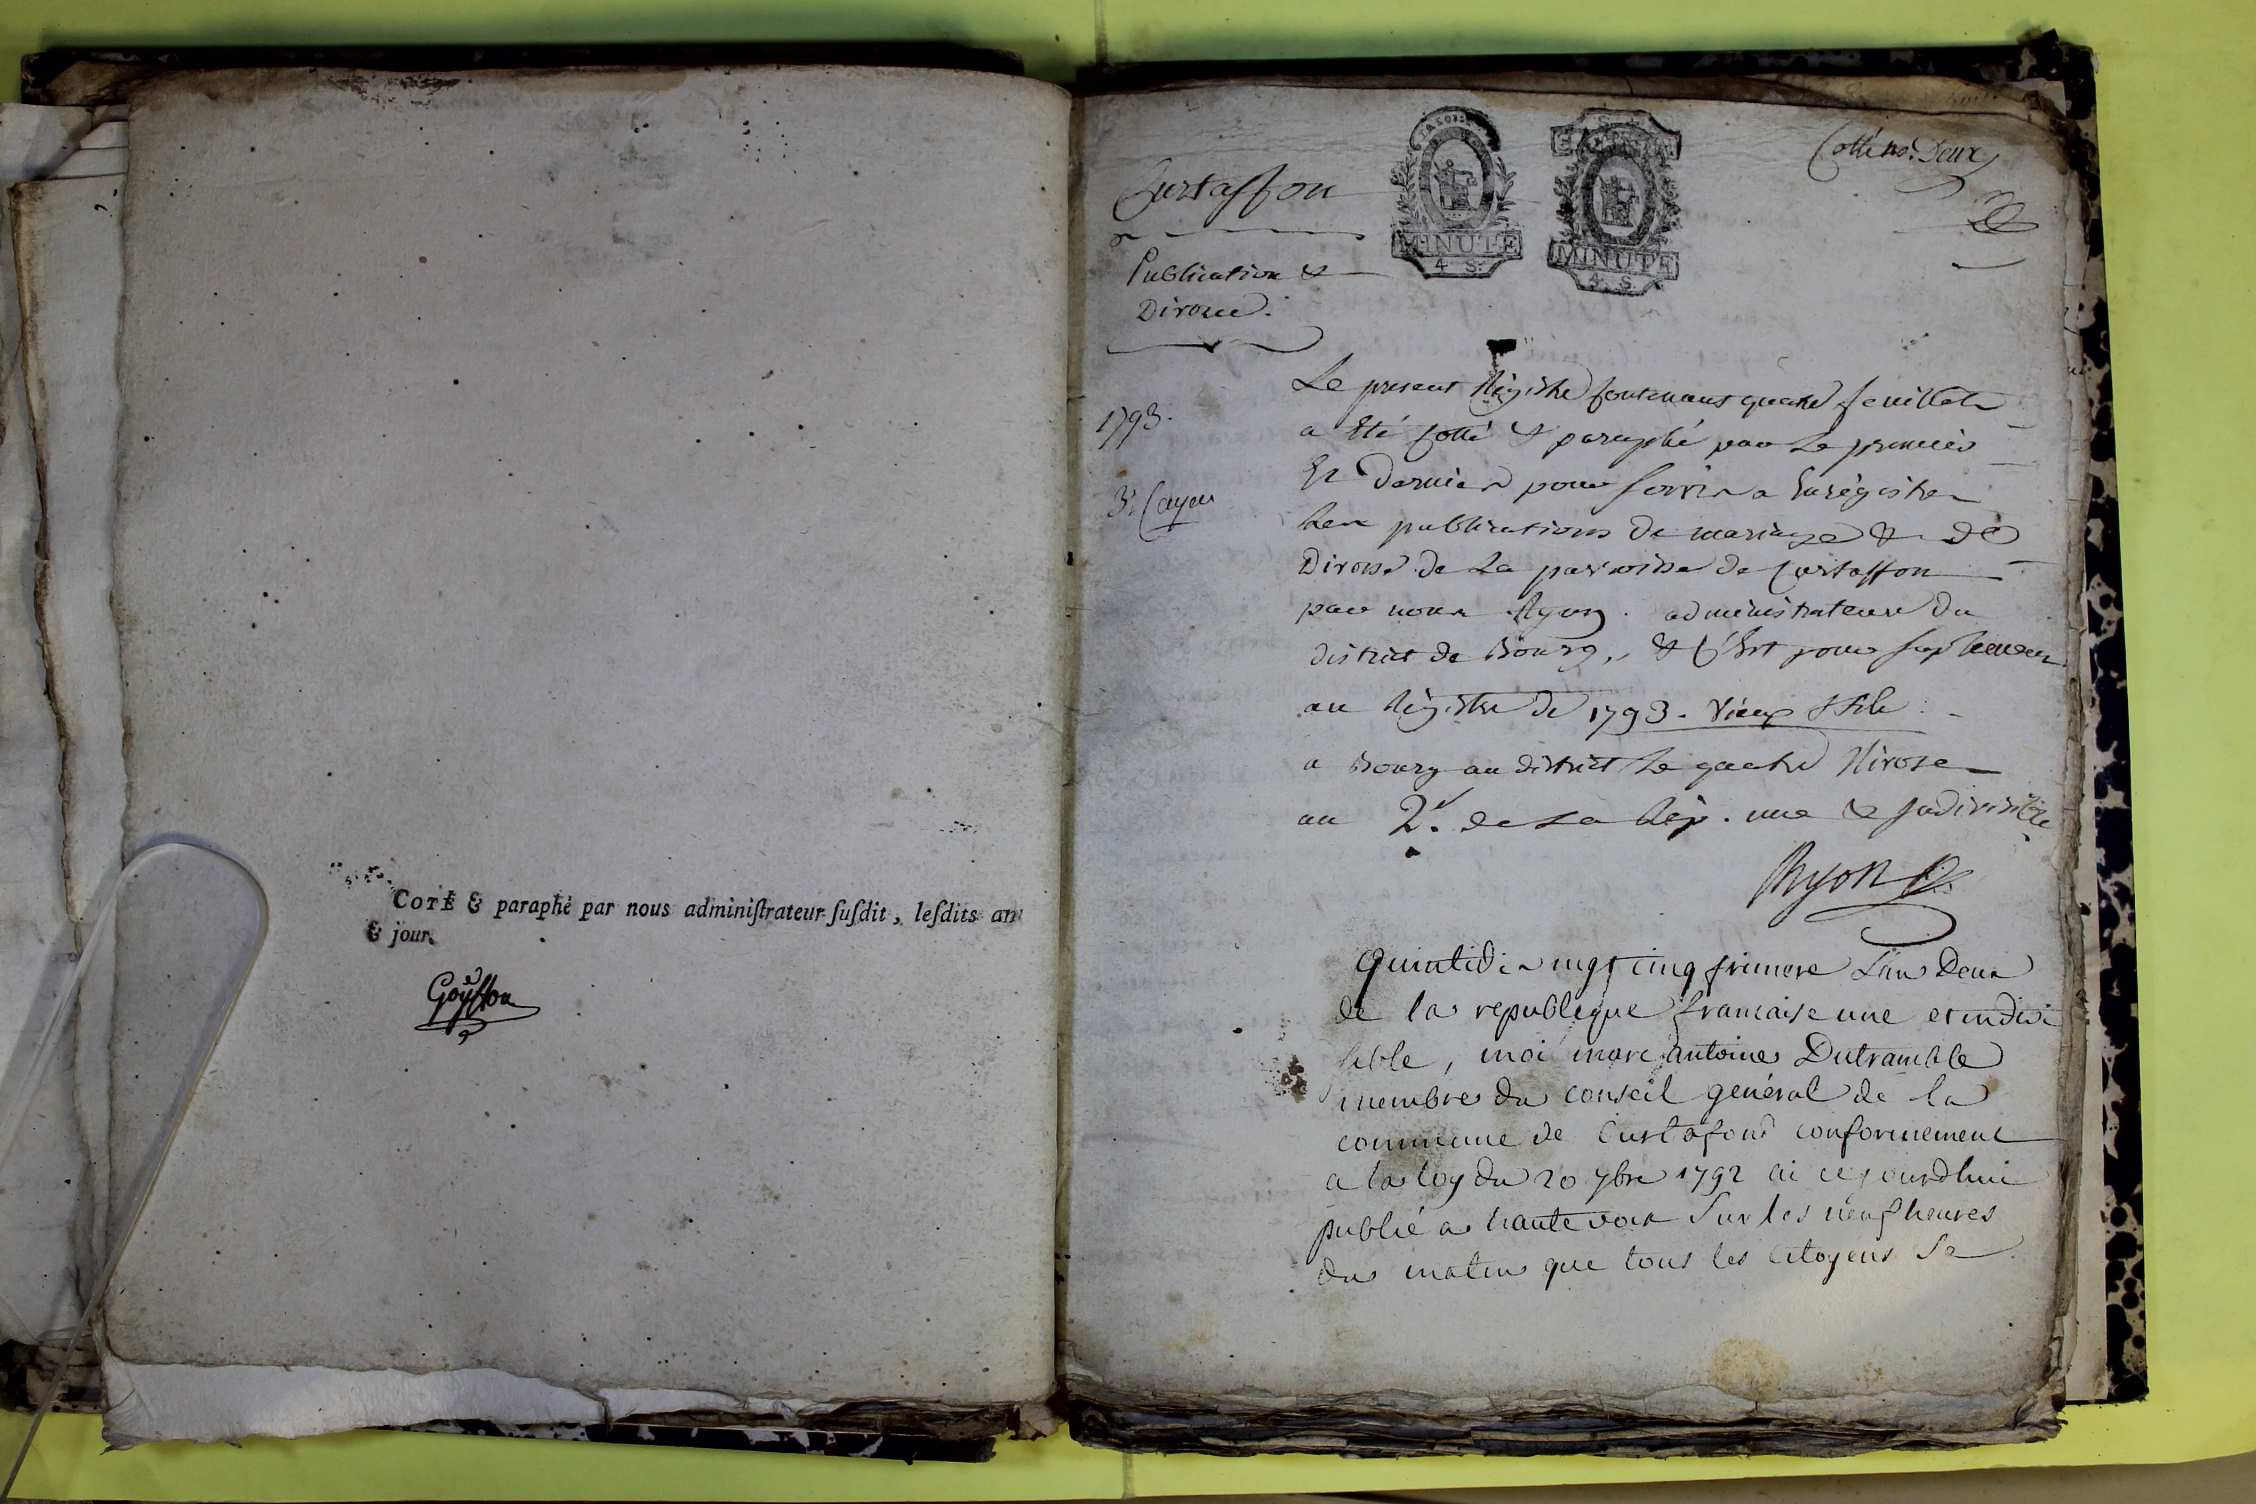 COTÉ & paraphé par nous adminiſtrateur ſuſdit, leſdits an
& jour.
Goÿffon
Cotté no. Deux
Curtaffon
MINUTE
4 S.
MINUTE
4 S.
Publication &
Divorce.
1793.
3e Cayer
Le present Régistre contenant quatre feuillets
a Eté Cotté & paraphé par Le premier
Et Dernier pour servir a Enrégistrer
Les publications de mariage & de
Divorse de La parroisse de Curtaffon
par nous Ryon administrateur du
district de Bourg, & C'Est pour suplement
au Régistre de 1793. Vieux stile
a Bourg au district Le quatre Nivose
an 2d. de La Rép. une & Indivisible
Ryon
Quintidi vingt cinq frimere L'an Deux
de la republique francaise une et indivi
sible, moi marc antoine Dutramble
membre du conseil genéral de la
commune de Curtafond conformement
a la loy du 20 7bre 1792 ai cejourdhui
publié a haute voix sur les neuf heures
du matin que tous les citoyens se